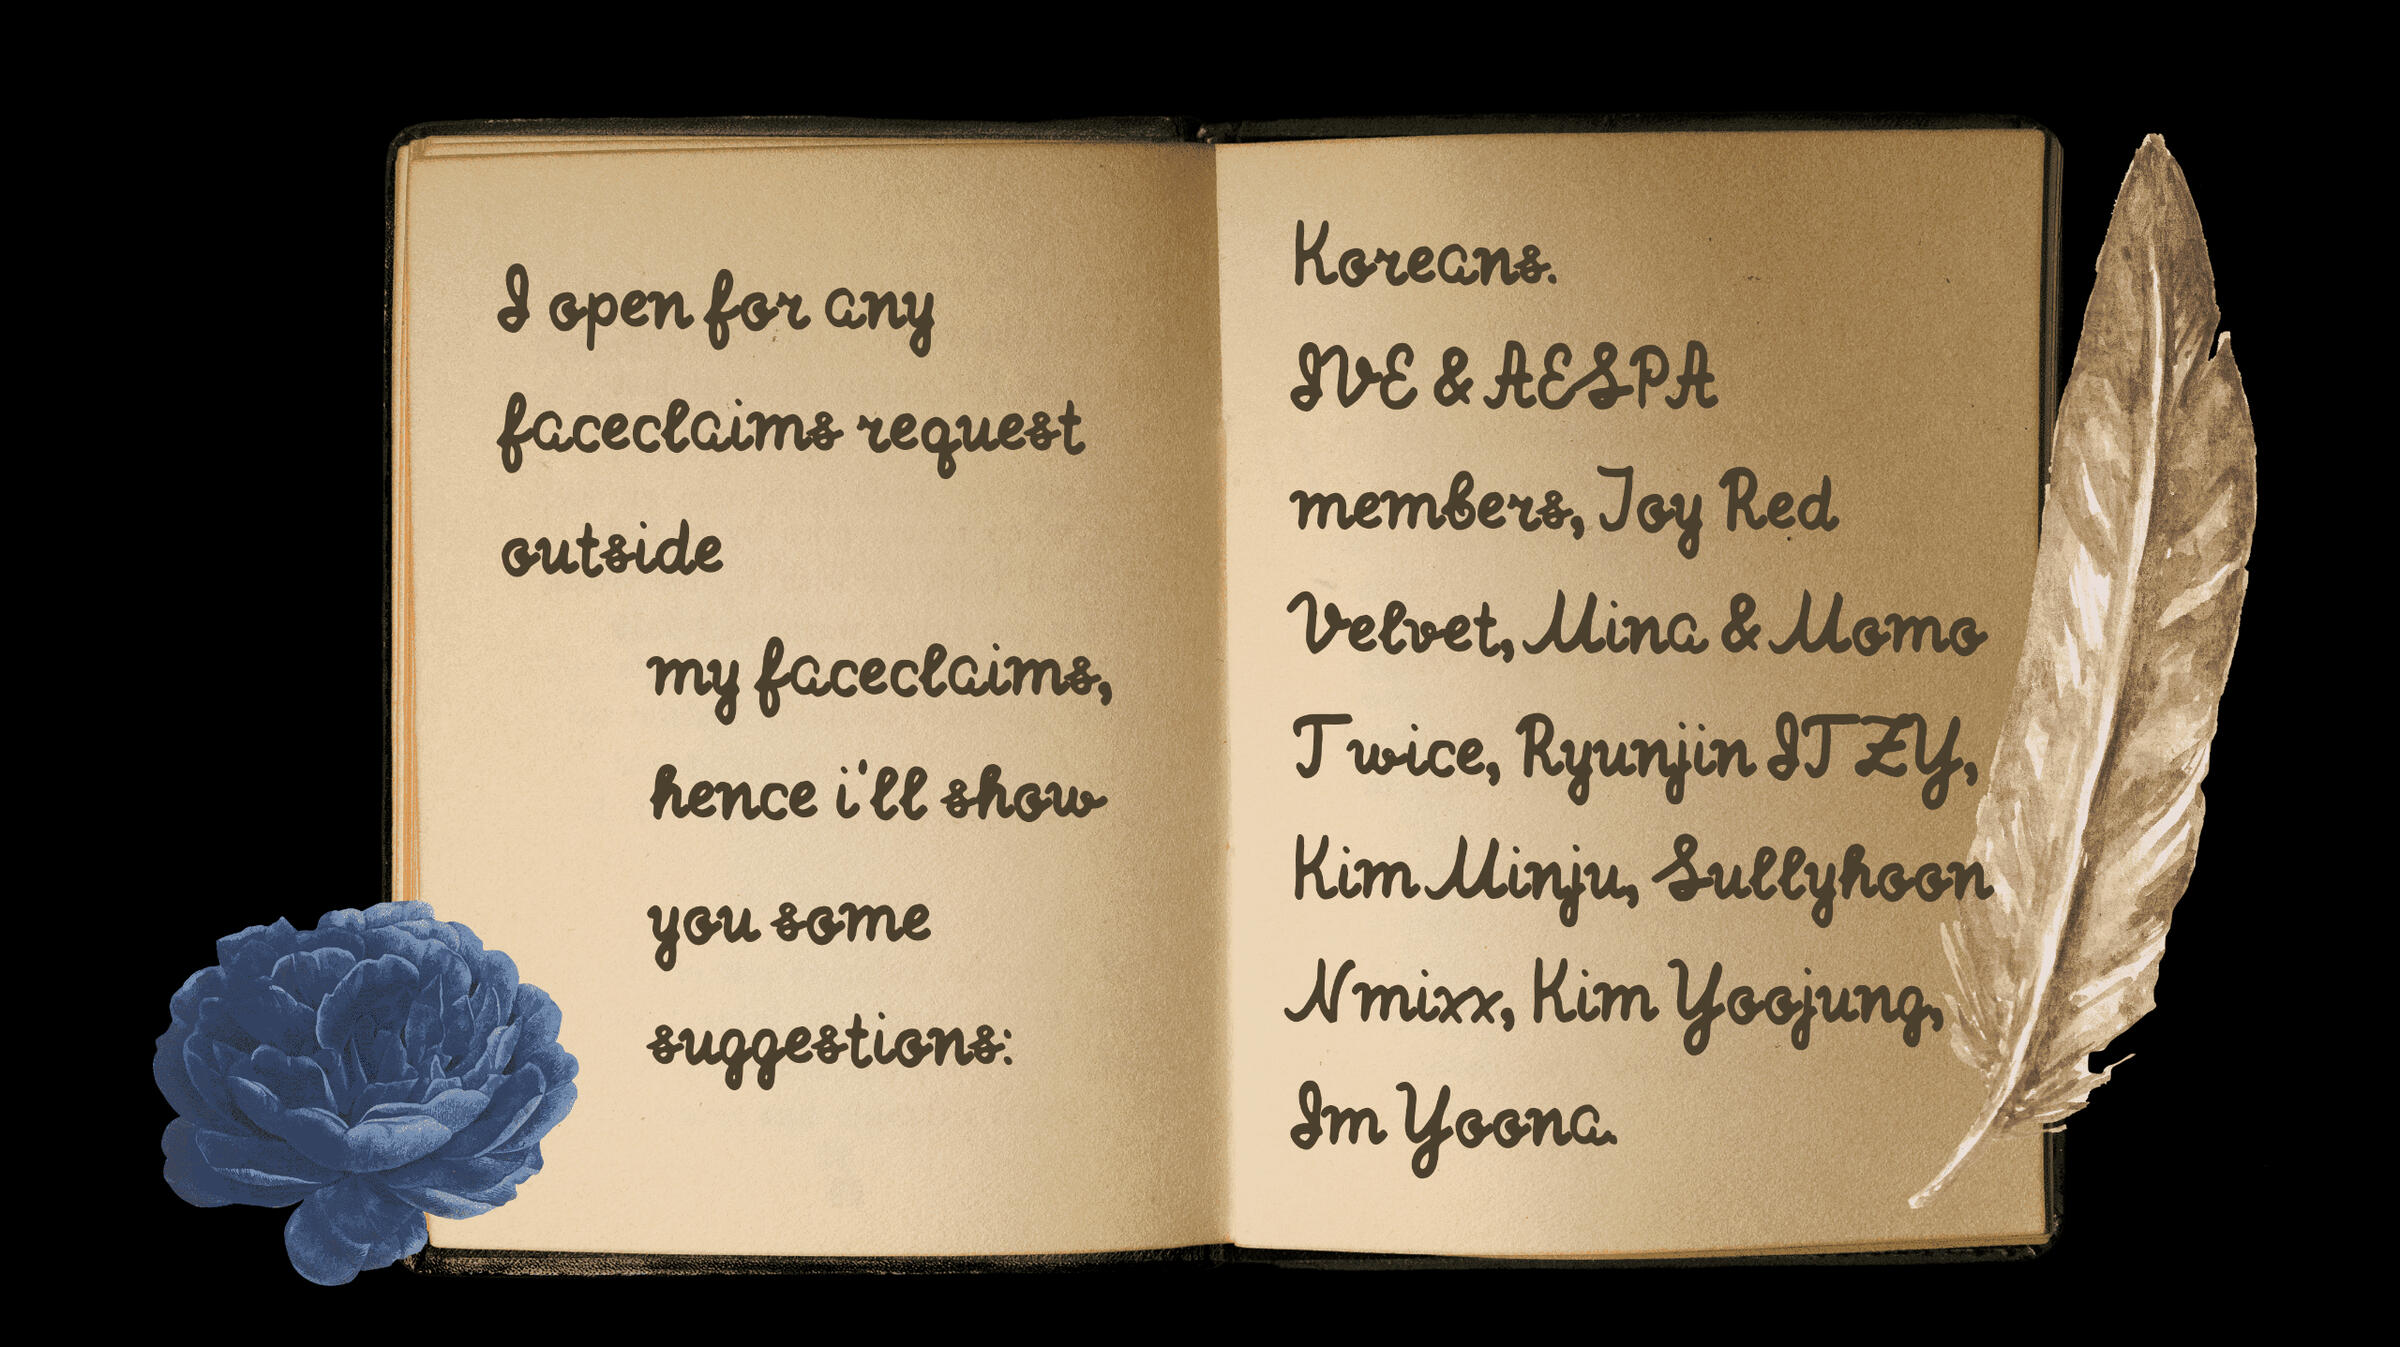 I open for any
faceclaims request
outside
my faceclaims,
hence i'll show
you some
suggestions:
Koreans.
IVE & AESPA
members, Joy Red
Velvet, Mina & Momo
Twice, Ryunjin ITZY,
Kim Minju, Sullyhoon
Nmixx, Kim Yoojung,
Im Yoona.